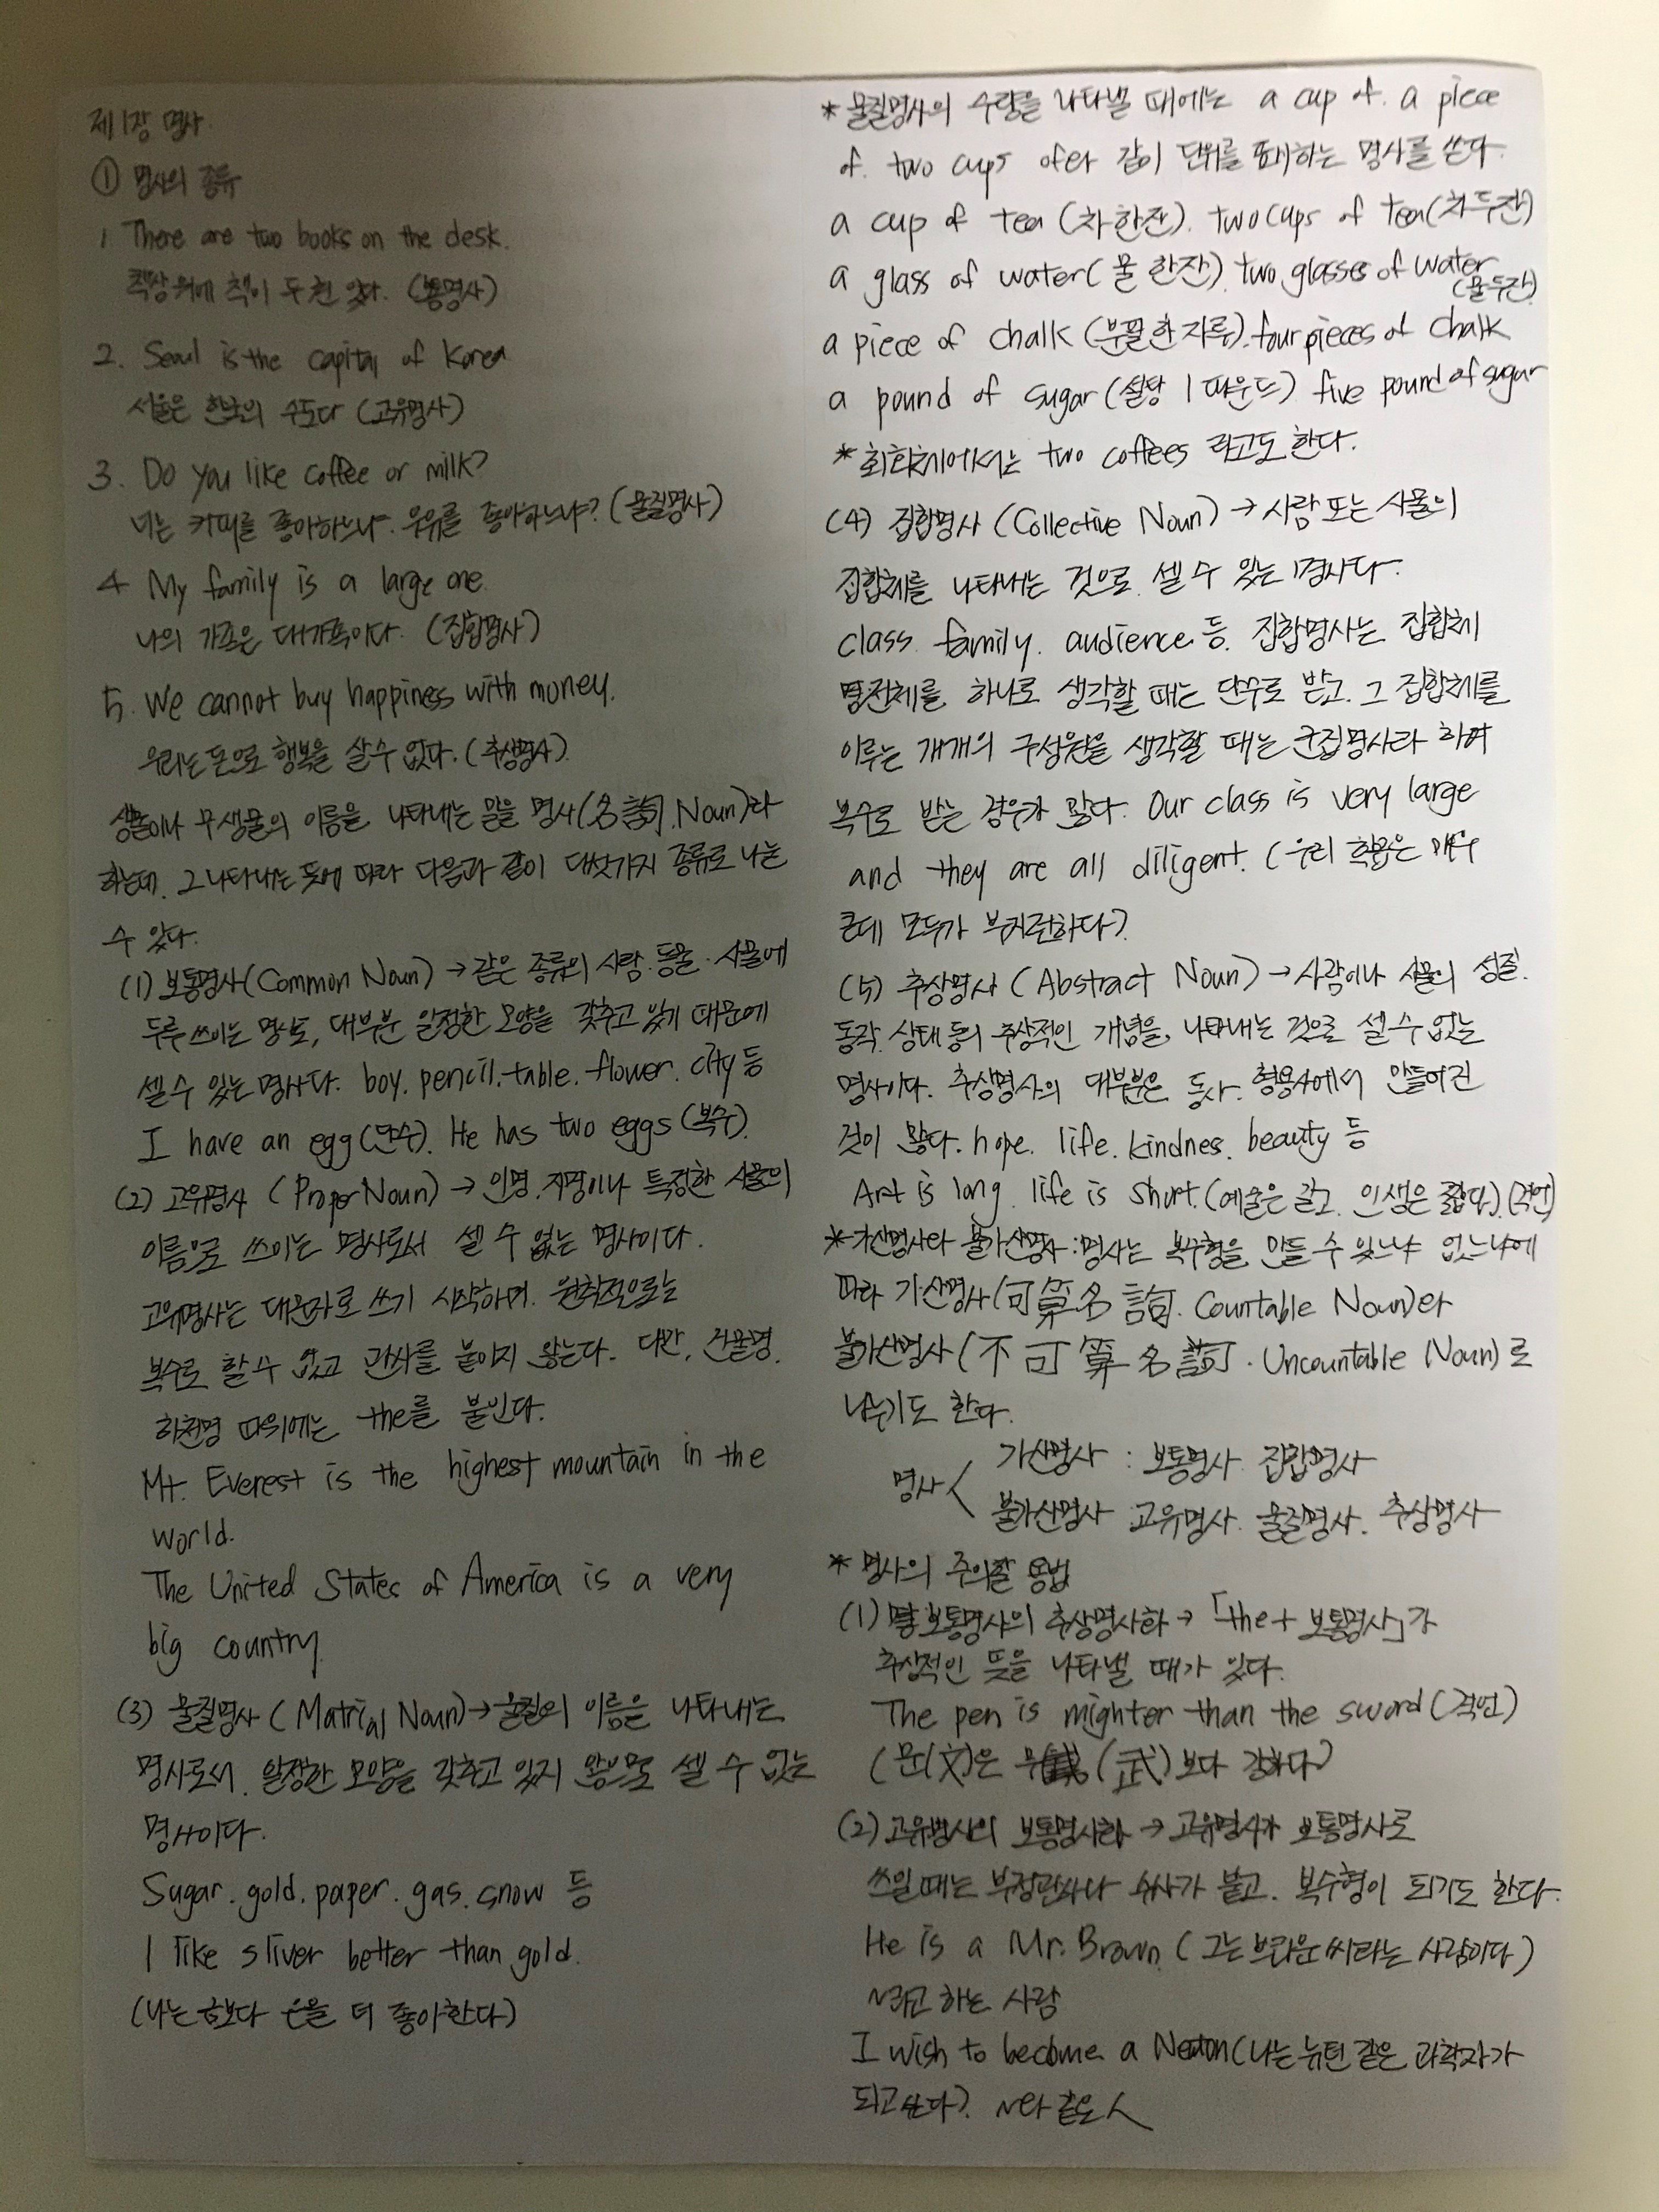 제1장 명사
① 명사의 종류
1 There are two books on the desk.
책상위에 책이 두권 있다. (보통명사)
2. Seoul is the capital of Korea
서울은 한국의 수도다 (고유명사)
3. Do you like coffee or milk?
너는 커피를 좋아하느냐. 우유를 좋아하느냐? (물질명사)
4 My family is a large one.
나의 가족은 대가족이다. (집합명사)
5. We cannot buy happiness with money.
우리는 돈으로 행복을 살수 없다. (추상명사)
생물이나 무생물의 이름을 나타내는 말을 명사(名詞. Noun)라
하는데. 그 나타내는 뜻에 따라 다음과 같이 대섯가지 종류로 나눌
수 있다.
(1) 보통명사(Common Noun) → 같은 종류의 사람. 동물. 사물에
두루 쓰이는 명사로, 대부분 일정한 모양을 갖추고 있기 때문에
셀 수 있는 명사다. boy. pencil. table. flower. city 등
I have an egg (단수). He has two eggs (복수).
(2) 고유명사 (Proper Noun) → 인명. 지명이나 특정한 사물의
이름으로 쓰이는 명사로서 셀 수 없는 명사이다.
고유명사는 대문자로 쓰기 시작하며. 원칙적으로는
복수로 할 수 없고 관사를 붙이지 않는다. 다만, 건물명.
하천명 따위에는 the를 붙인다.
Mt. Everest is the highest mountain in the
world.
The United States of America is a very
big country.
(3) 물질명사 (Matrial Noun) → 물질의 이름을 나타내는
명사로서. 일정한 모양을 갖추고 있지 않으므로 셀 수 없는
명사이다.
Sugar. gold. paper. gas. snow 등
I like sliver better than gold.
(나는 금보다 은을 더 좋아한다)
* 물질명사의 수량을 나타낼 때에는 a cup of. a piece
of. two cups of와 같이 단위를 표시하는 명사를 쓴다.
a cup of tea (차 한잔). two cups of tea (차 두잔)
a glass of water (물 한잔). two glasses of water
(물 두잔)
a piece of chalk (분필 한 자루). four pieces of chalk
a pound of sugar (설탕 1 파운드) five pound of sugar
* 회화체에서는 two coffees 라고도 한다.
(4) 집합명사 (Collective Noun) → 사람 또는 사물의
집합체를 나타내는 것으로 셀 수 있는 명사다.
class. family. audience 등. 집합명사는 집합체
전체를 하나로 생각할 때는 단수로 받고. 그 집합체를
이루는 개개의 구성원을 생각할 때는 군집명사라 하여
복수로 받는 경우가 많다. Our class is very large
and they are all diligent. (우리 학급은 매우
큰데 모두가 부지런하다).
(5) 추상명사 (Abstract Noun) → 사람이나 사물의 성질.
동작. 상태 등의 추상적인 개념을, 나타내는 것으로 셀 수 없는
명사이다. 추상명사의 대부분은 동사. 형용사에서 만들어진
것이 많다. hope. life. kindnes. beauty 등
Art is long. life is short. (예술은 길고. 인생은 짧다). (격언)
* 가산명사라 불가산명사 : 명사는 복수형을 만들 수 있느냐 없느냐에
따라 가산명사(可算名詞. Countable Noun)와
불가산명사 (不可算名詞. Uncountable Noun)로
나누기도 한다.
명사 < 가산명사 : 보통명사. 집합명사
불가산명사 고유명사. 물질명사. 추상명사
* 명사의 주의할 용법
(1) 보통명사의 추상명사화 → 「the + 보통명사」가
추상적인 뜻을 나타낼 때가 있다.
The pen is mighter than the sword (격언)
(문(文)은 무(武)보다 강하다)
(2) 고유명사의 보통명사화 → 고유명사가 보통명사로
쓰일 때는 부정관사나 수사가 붙고. 복수형이 되기도 한다.
He is a Mr. Brown. (그는 브라운 씨라는 사람이다)
~라고 하는 사람
I wish to become a Newton (나는 뉴턴 같은 과학자가
되고싶다). ~와 같은 人